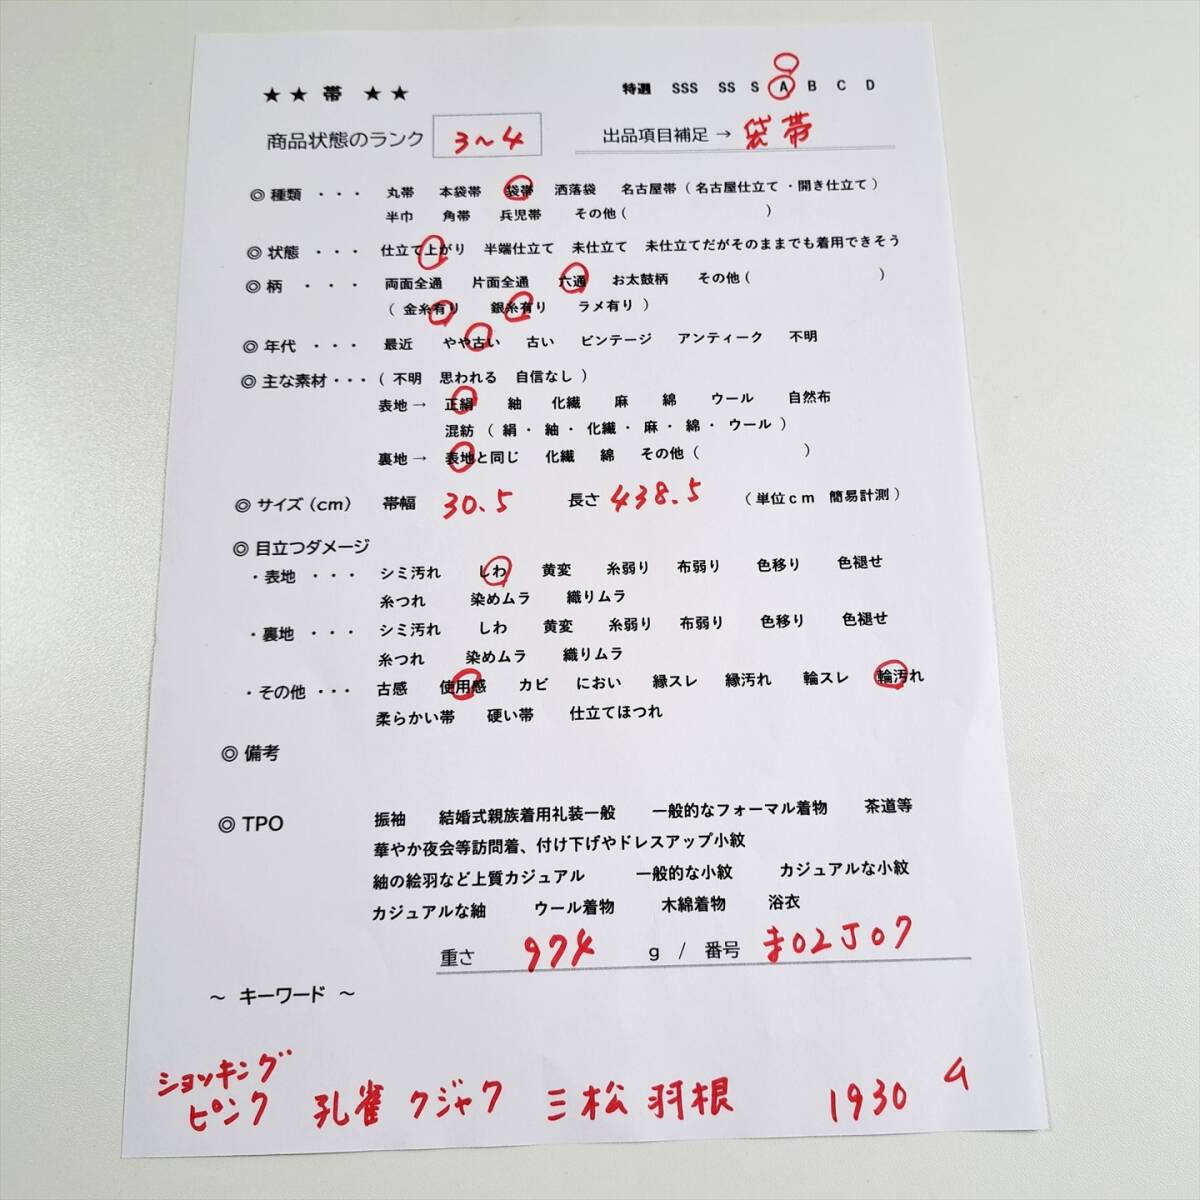 ★ ★ 帯 ★ ★
特選 SSS SS S A B C D
商品状態のランク 3~4 出品項目補足 → 袋帯
◎ 種類 ・・・ 丸帯 本袋帯 袋帯 洒落袋 名古屋帯 ( 名古屋仕立て ・開き仕立て )
半巾 角帯 兵児帯 その他 ( )
◎ 状態 ・・・ 仕立て上がり 半端仕立て 未仕立て 未仕立てだがそのままでも着用できそう
◎ 柄 ・・・ 両面全通 片面全通 六通 お太鼓柄 その他 ( )
( 金糸有り 銀糸有り ラメ有り )
◎ 年代 ・・・ 最近 やや古い 古い ビンテージ アンティーク 不明
◎ 主な素材・・・ ( 不明 思われる 自信なし )
表地 → 正絹 紬 化繊 麻 綿 ウール 自然布
混紡 ( 絹・ 紬・ 化繊・ 麻・ 綿・ ウール )
裏地 → 表地と同じ 化繊 綿 その他 ( )
◎ サイズ (cm) 帯幅 30.5 長さ 438.5 ( 単位cm 簡易計測 )
◎ 目立つダメージ
・表地 ・・・ シミ汚れ しわ 黄変 糸弱り 布弱り 色移り 色褪せ
糸つれ 染めムラ 織りムラ
・裏地 ・・・ シミ汚れ しわ 黄変 糸弱り 布弱り 色移り 色褪せ
糸つれ 染めムラ 織りムラ
・その他 ・・・ 古感 使用感 カビ におい 縁スレ 縁汚れ 輪スレ 輪汚れ
柔らかい帯 硬い帯 仕立てほつれ
◎ 備考
◎ TPO 振袖 結婚式親族着用礼装一般 一般的なフォーマル着物 茶道等
華やか夜会等訪問着、付け下げやドレスアップ小紋
紬の絵羽など上質カジュアル 一般的な小紋 カジュアルな小紋
カジュアルな紬 ウール着物 木綿着物 浴衣
重さ 974 g / 番号 ま02J07
~ キーワード ~
ショッキング
ピンク 孔雀 クジャク 三松 羽根 1930